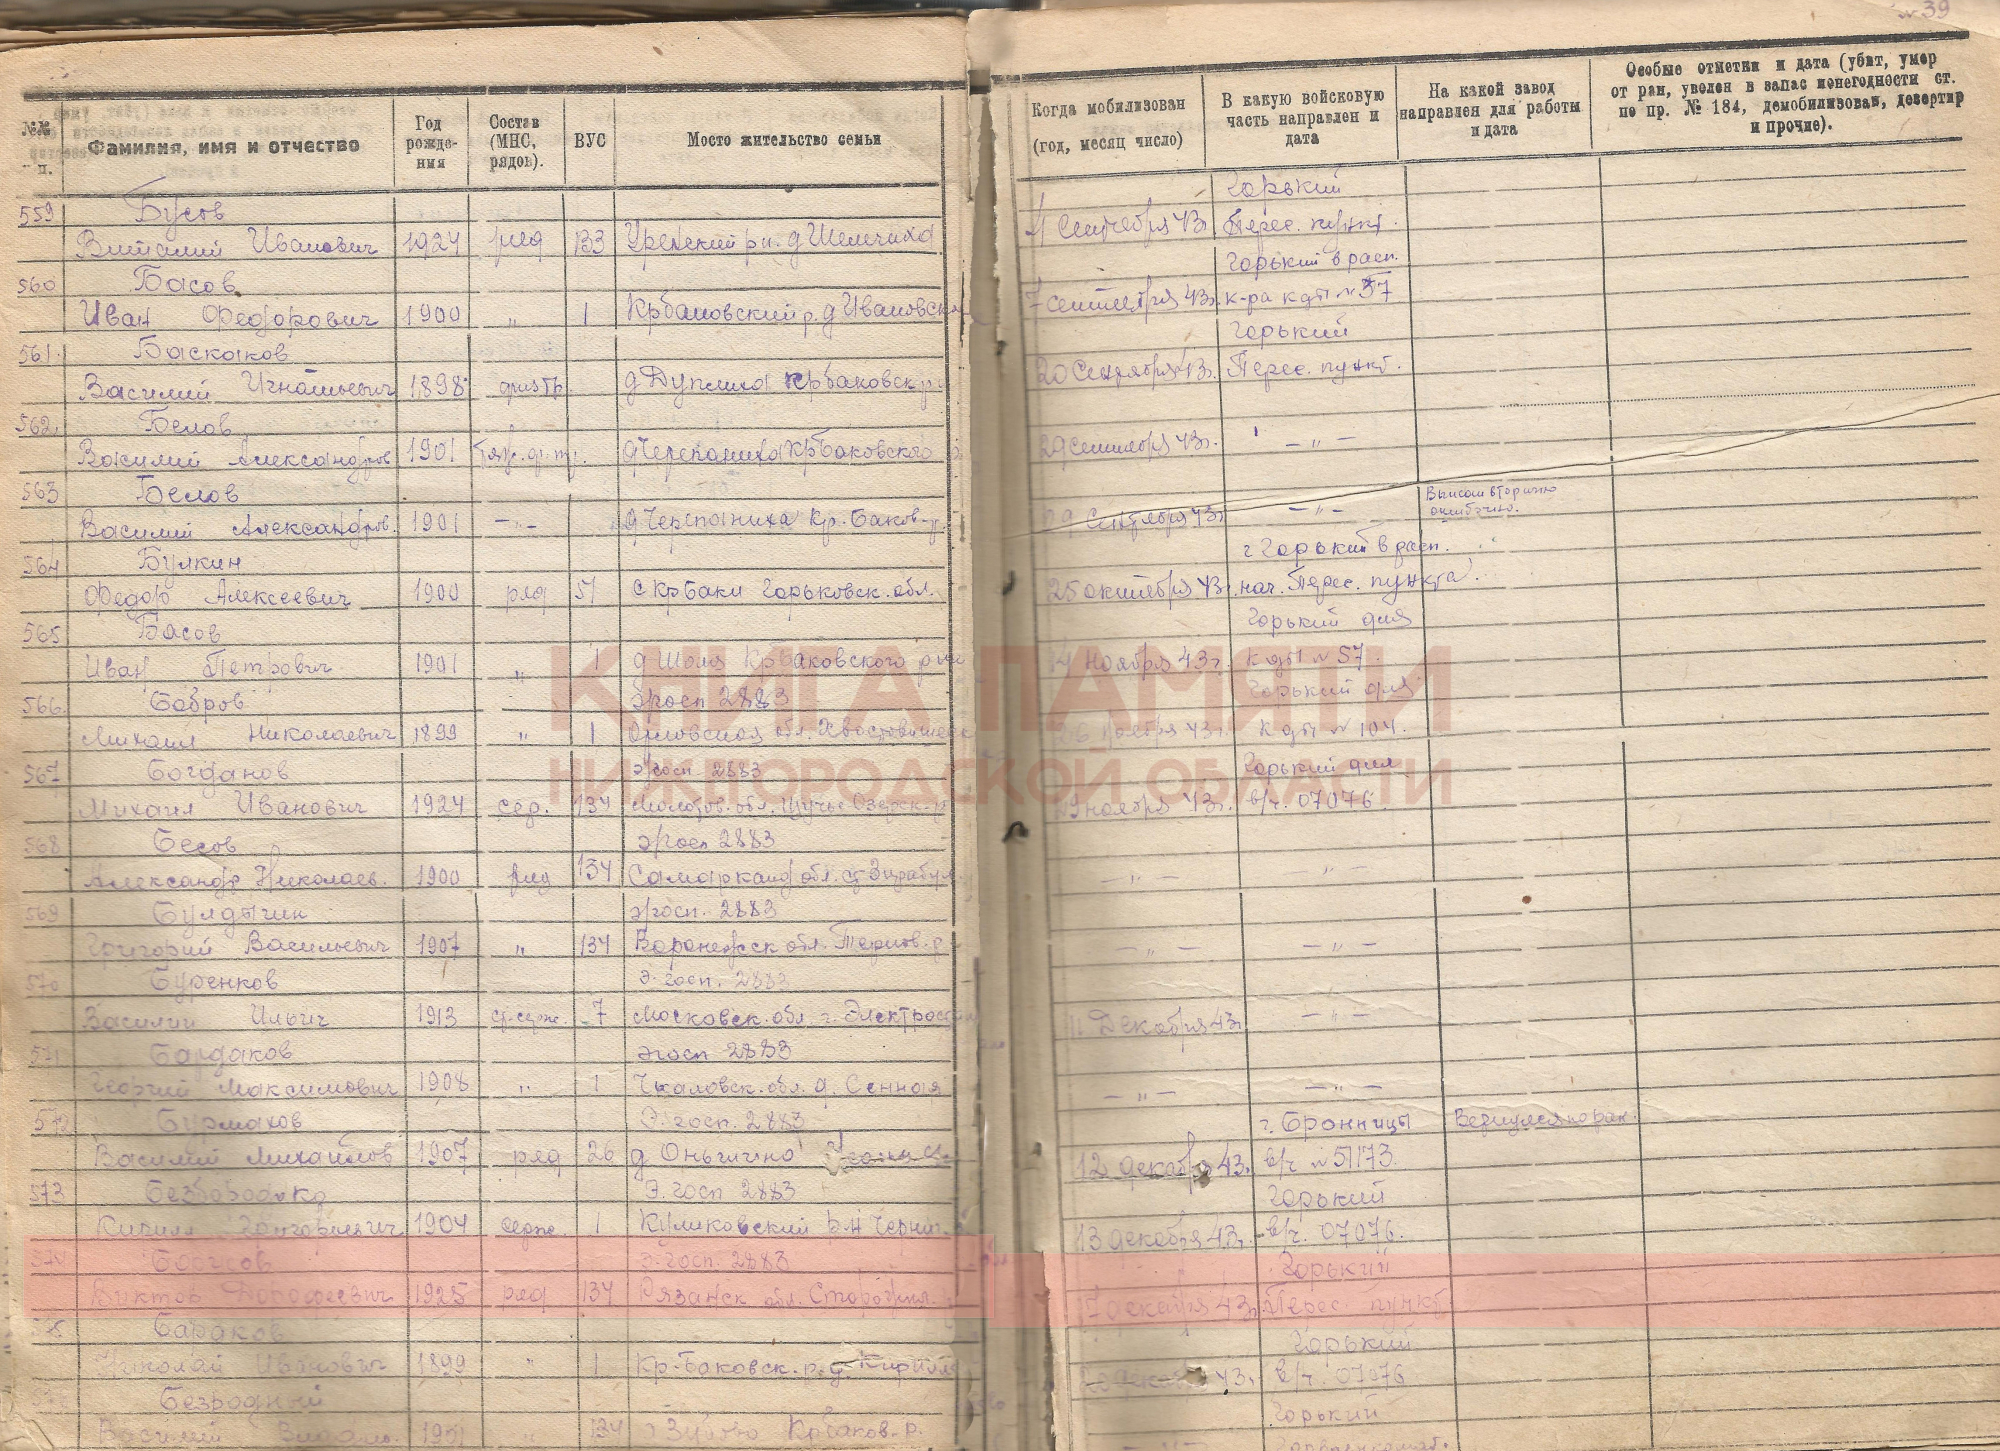 № 39
№№ п.
Фамилия, имя и отчество
Год рожде-ния
Состав (МНС, рядов).
ВУС
Место жительство семьи
Когда мобилизован (год, месяц число)
В какую войсковую часть направлен и дата
На какой завод направлен для работы и дата
Особые отметки и дата (убит, умер от ран, уволен в запас по негодности ст. по пр. № 184, демобилизован, дезертир и прочие).
559 Бусов Горький
Виталий Иванович 1924 ряд 133 Уренский р-н. д 4 Сентября 43г. Перес. пункт.
560 Басов Горький в расп.
Иван Федорович 1900 " 1 Крбаковский р. д Ивановск 7 сентября 43г. к-ра кдп № 57
561. Баскаков Горький
Василий Игнатьевич 1898 д Дуплиха Крбаковск р 20 Сентября 43г. Перес. пункт.
562. Белов
Василий Александров 1901 д Черепаниха Крбаковского 29 сентября 43г. — " —
563 Белов Вписан вторично ошибочно.
Василий Александров. 1901 — " — д Черепаниха Кр. Баков. р 29 сентября 43г. — " —
564 Булкин г Горький в расп.
Федор Алексеевич 1900 ряд 51 с КрБаки Горьковск. обл. 25 октября 43г. нач. Перес. пункта
565 Басов Горький для
Иван Петрович 1901 " 1 д Шоля Крбаковского р 14 ноября 43г. кдп № 57.
566. Бобров э/госп 2883 Горький для
Михаил Николаевич 1899 " 1 Орловская обл. 26 ноября 43г. кдп № 104.
567 Богданов э/госп 2883 Горький для
Михаил Иванович 1924 сер. 134 Молотов. обл. 29 ноября 43г. в/ч. 07076.
568 Бесов э/госп 2883
Александр Николаев. 1900 ряд 134 Самарканд обл. — " — "
569 Булдыгин э/госп. 2883
Григорий Васильевич 1907 " 134 Воронежск обл. Тернов. р — " — — " —
570 Буренков Э. госп. 2883
Василий Ильич 1913 ст-серж. 7 Московск. обл. г. Электростал 11 Декабря 43г. — " —
571 Бардаков эгосп 2883
Георгий Максимович 1908 " 1 Чкаловск. обл. д. Сенная — " — — " —
572 Бурмахов Э. госп. 2883 г. Бронницы
Василий Михайлов 1907 ряд 26 д 12 декабря 43г. в/ч № 51173.
573 Безбородько Э. госп 2883 Горький
Кирилл Григорьевич 1904 серж. 1 Куликовский р-н Черниг. 13 декабря 43г. в/ч. 07076.
574 э. госп. 2883 Горький
Виктор Дорофеевич 1925 ряд 134 Рязанск обл. 17 декабря 43г. Перес. пункт
575 Бараков Горький
Николай Иванович 1899 " 1 Кр-Баковск. р. д. декаб 43г. в/ч. 07076
576 Безродный Горький
Василий " 134 Крбаков. р. — " —
КНИГА ПАМЯТИ
НИЖГОРОДСКОЙ ОБЛАСТИ